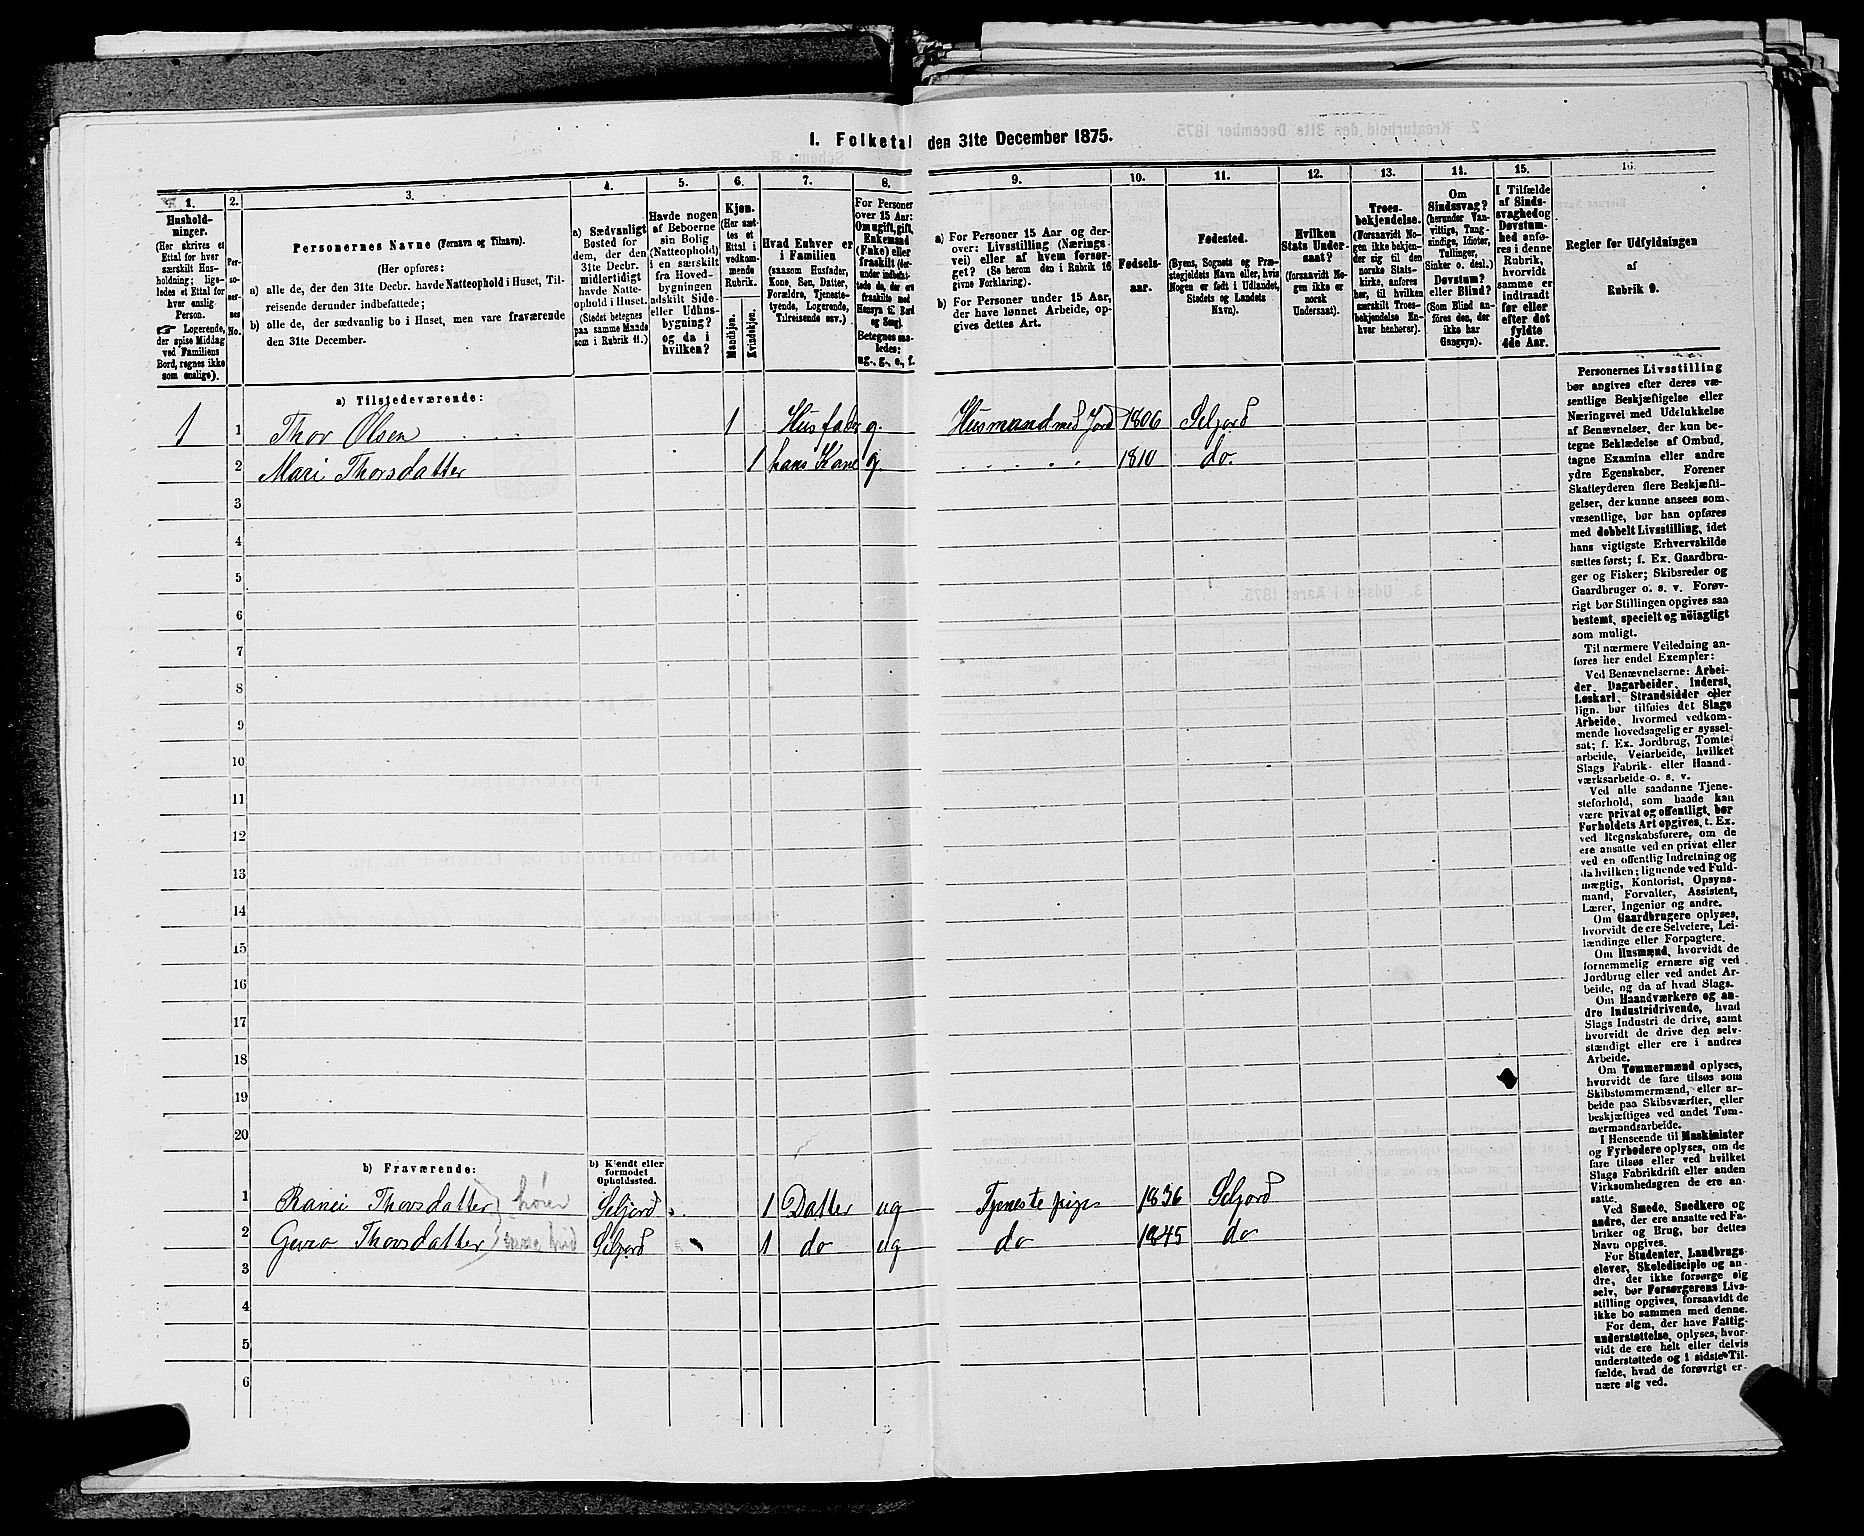 I. Folketal den 31te December 1875.
1. 2. 3. 4. 5. 6. 7. 8. 9. 10. 11. 12. 13. 14. 15. 16.
Hushold-
ninger.
(Her skrives et
Ettal for hver
særskilt Hus-
holdning; lige-
ledes et Ettal for
hver enslig
Person.
☞ Logerende,
der spise Middag
ved Familiens
Bord, regnes ikke
som enslige).
Per-
so-
ner-
nes
No.
Personernes Navne (Fornavn og Tilnavn).
(Her opføres:
a) alle de, der den 31te Decbr. havde Natteophold i Huset, Til-
reisende derunder indbefattede;
b) alle de, der sædvanlig bo i Huset, men vare fraværende
den 31te December.
a) Sædvanligt
Bosted for
dem, der den
31te Decbr.
midlertidigt
havde Natte-
ophold i Huset.
(Stedet betegnes
paa samme Maade
som i Rubrik 11.)
Havde nogen
af Beboerne
sin Bolig
(Natteophold)
i en særskilt
fra Hoved-
bygningen
adskilt Side-
eller Udhus-
bygning?
og da i
hvilken?
Kjøn.
(Her sæt-
tes et
Ettal i
vedkom-
mende
Rubrik.
Mandkjøn.
Kvindekjøn.
Hvad Enhver er
i Familien
(saasom Husfader,
Kone, Søn, Datter,
Forældre, Tjeneste-
tyende, Logerende,
Tilreisende osv.)
For Personer
over 15 Aar:
Om ugift, gift,
Enkemand
(Enke) eller
fraskilt (der-
under indbefat-
tede de, der ere
fraskilte med
Hensyn til Bord
og Seng).
Betegnes saa-
ledes:
ug., g., e., f.
a) For Personer 15 Aar og der-
over: Livsstilling (Nærings-
vei) eller af hvem forsør-
get? (Se herom den i Rubrik 16
givne Forklaring).
b) For Personer under 15 Aar,
der have lønnet Arbeide, op-
gives dettes Art.
Fødsels-
aar.
Fødested.
(Byens, Sognets og Præ-
stegjeldets Navn eller, hvis
Nogen er født i Udlandet,
Stedets og Landets
Navn).
Hvilken
Stats Under-
saat?
(forsaavidt No-
gen ikke er
norsk
Undersaat).
Troes-
bekjendelse.
(Forsaavidt No-
gen ikke bekjen-
der sig til den
norske Stats-
kirke, anføres
her, til hvilken
særskilt Troes-
bekjendelse En-
hver henhører).
Om
Sindssvag?
(herunder Van-
vittige, Tung-
sindige, Idioter,
Tullinger,
Sinker o. desl.)
Døvstum?
eller Blind?
(Som Blind an-
føres den, der
ikke har
Gangsyn).
I Tilfælde
af Sinds-
svaghed og
Døvstum-
hed anfø-
res i denne
Rubrik,
hvorvidt
samme er
indtraadt
før eller
efter det
fyldte
4de Aar.
Regler for Udfyldningen
af
Rubrik 9.
a) Tilstedeværende:
1 1 Thor Olsen 1 Husfader g. Husmand med Jord 1806 Seljord
2 Mari Thorsdatter 1 hans Kone g 1810 do.
3
4
5
6
7
8
9
10
11
12
13
14
15
16
17
18
19
20
b) Fraværende:
b) Kjendt eller
formodet
Opholdssted.
1 Ranei Thorsdatter Seljord 1 Datter ug Tjenestepige 1836 Seljord
2 Thorsdatter Seljord 1 do ug do 1845 do
3
4
5
6
Personernes Livsstilling
bør angives efter deres væ-
sentlige Beskjæftigelse eller
Næringsvei med Udelukkelse
af Benævnelser, der kun be-
tegne Beklædelse af Ombud,
tagne Examina eller andre
ydre Egenskaber. Forener
Skatteyderen flere Beskjæfti-
gelser, der kunne ansees som
væsentlige, bør han opføres
med dobbelt Livsstilling, idet
hans vigtigste Erhvervskilde
sættes først; f. Ex. Gaardbru-
ger og Fisker; Skibsreder og
Gaardbruger o. s. v. Forøv-
rigt bør Stillingen opgives saa
bestemt, specielt og nöiagtigt
som muligt.
Til nærmere Veiledning an-
føres her endel Exempler:
Ved Benævnelserne: Arbei-
der, Dagarbeider, Inderst,
Løskarl, Strandsidder eller
lign. bør tilføies det Slags
Arbeide, hvormed vedkom-
mende hovedsagelig er syssel-
sat; f. Ex. Jordbrug, Tomte-
arbeide, Veiarbeide, hvilket
Slags Fabrik- eller Haand-
værksarbeide o. s. v.
Ved alle saadanne Tjene-
steforhold, som baade kan
være privat og offentligt, bør
Forholdets Art opgives, t. Ex.
ved Regnskabsførere, om de
ere ansatte ved en privat eller
ved en offentlig Indretning og
da hvilken; lignende ved Fuld-
mægtig, Kontorist, Opsyns-
mand, Forvalter, Assistent,
Lærer, Ingeniør og andre.
Om Gaardbrugere oplyses,
hvorvidt de ere Selveiere, Lei-
lændinge eller Forpagtere.
Om Husmænd, hvorvidt de
fornemmelig ernære sig ved
Jordbrug eller ved andet Ar-
beide, og da af hvad Slags.
Om Haandværkere og an-
dre Industridrivende, hvad
Slags Industri de drive, samt
hvorvidt de drive den selv-
stændigt eller ere i andres
Arbeide.
Om Tømmermænd oplyses,
hvorvidt de fare tilsøs som
Skibstømmermænd, eller ar-
beide paa Skibsværfter, eller
beskjæftiges ved andet Tøm-
mermandsarbeide.
I Henseende til Maskinister
og Fyrbødere oplyses, om de
fare tilsøs eller ved hvilket
Slags Fabrikdrift eller anden
Virksomhedsgren de ere an-
satte.
Ved Smede, Snedkere og
andre, der ere ansatte ved Fa-
briker og Brug, bør dettes
Navn opgives.
For Studenter, Landbrugs-
elever, Skoledisciple og an-
dre, der ikke forsørge sig
selv, bør Forsørgerens Livs-
stilling opgives, forsaavidt de
ikke bo sammen med denne.
For dem, der have Fattig-
understøttelse, oplyses, hvor-
vidt de ere helt eller delvis
understøttede og i sidste Til-
fælde, hvad de forøvrigt er-
nære sig ved.